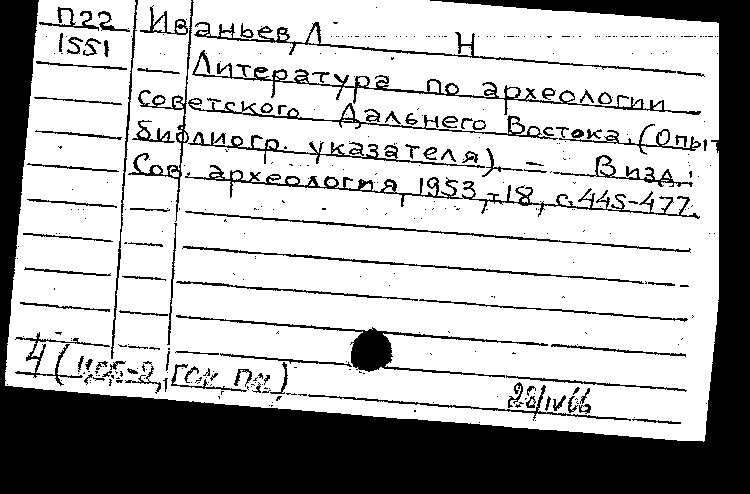 П22
1551
Иваньев, Л Н
Литература по археологии
советского Дальнего Востока. (Опыт
библиогр. указателя). = В изд.:
Сов. археология, 1953, т.18, с.445-477.
4 (ЦСБ-2, ГСК, ПК)
28/IV 66